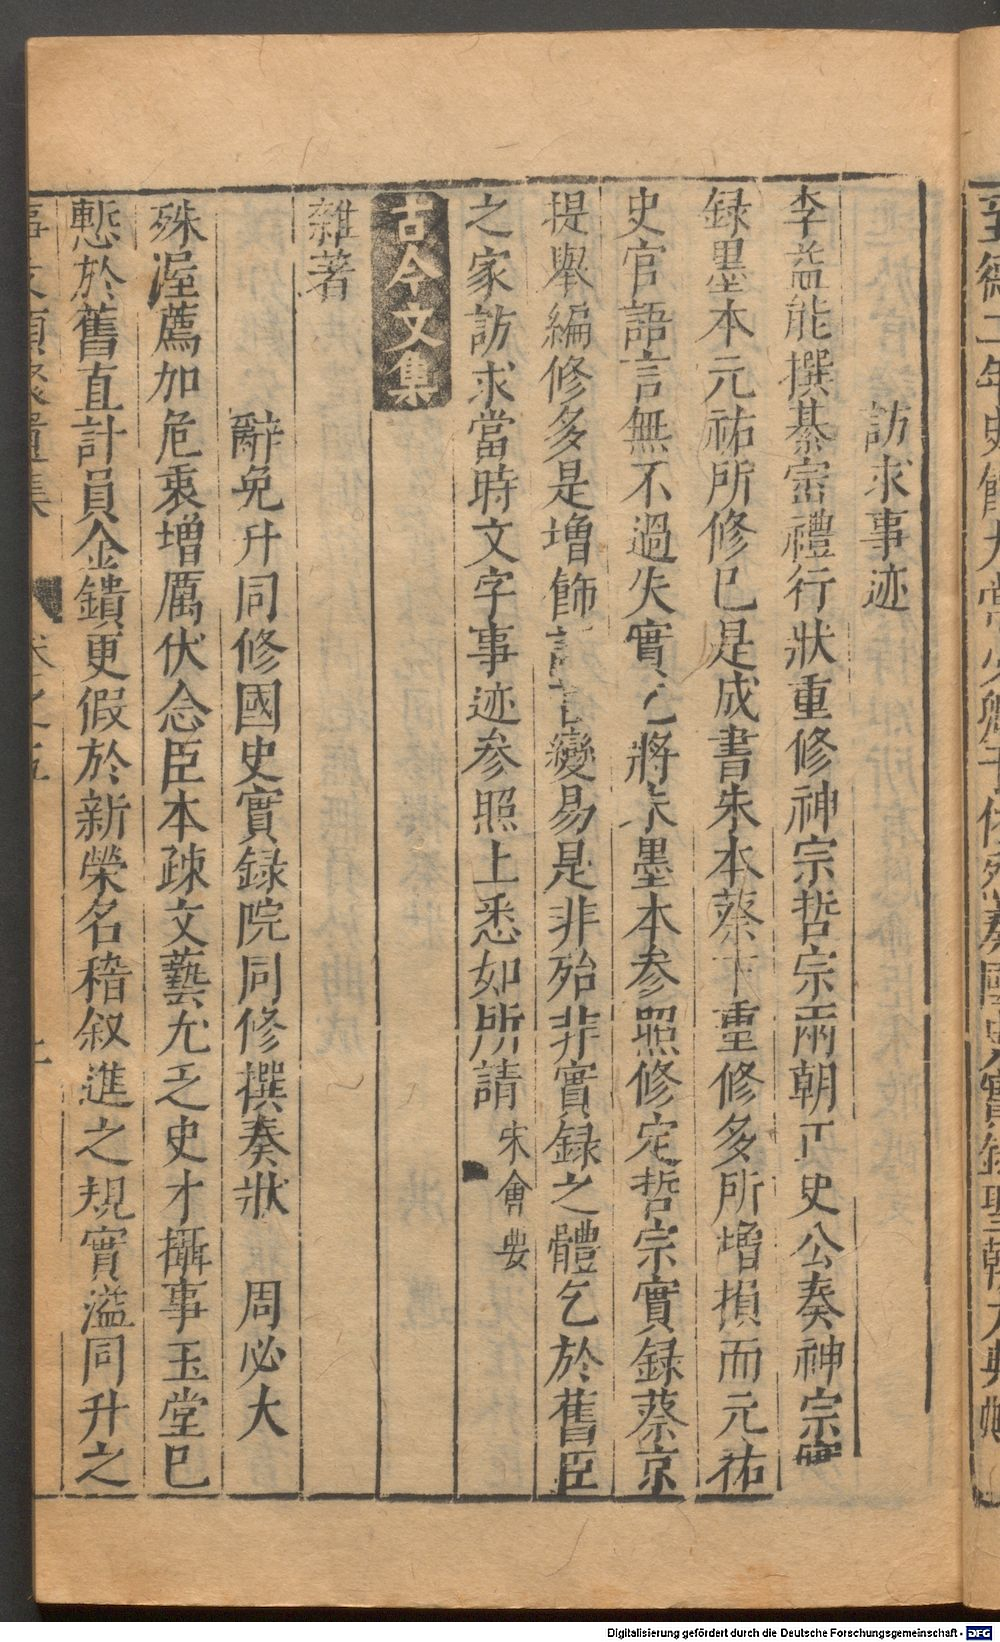 訪求事迹
李益能撰綦宻禮行狀重修神宗哲宗兩朝正史公奏神宗實
録墨本元祐所修巳是成書朱本蔡卞重修多所增損而元祐
史官語言無不過失實乞將朱墨本参照修定哲宗實録蔡京
提舉編修多是増飾言變易是非殆非實録之體乞於舊臣
之家訪求當時文字事迹参照上悉如所請 宋會要
古今文集
雜著
辭免升同修國史實録院同修撰奏狀 周必大
殊渥薦加危衷增厲伏念臣本疎文藝尤乏史才攝事玉堂巳
慙於舊直計員金鐀更假於新榮名稽叙進之規實溢同升之
事文類聚遺集 卷之五
Digitalisierung gefördert durch die Deutsche Forschungsgemeinschaft - DFG